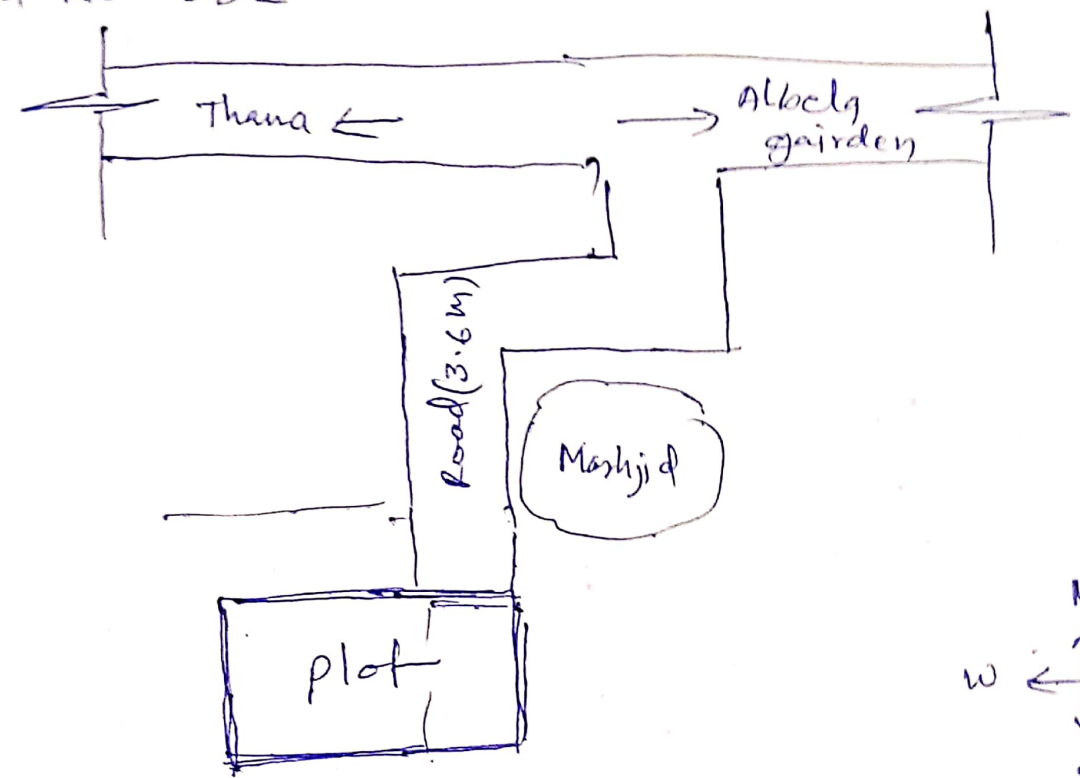 Thana ←
→ Albela
gairden
Road (3.6 M)
Mashjid
plot
W ←